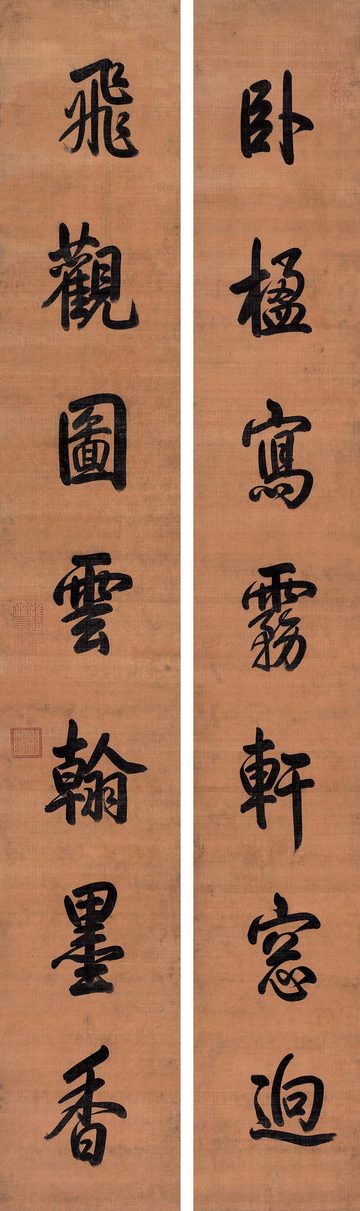 卧楹寫霧軒窓迥
飛觀圖雲翰墨香